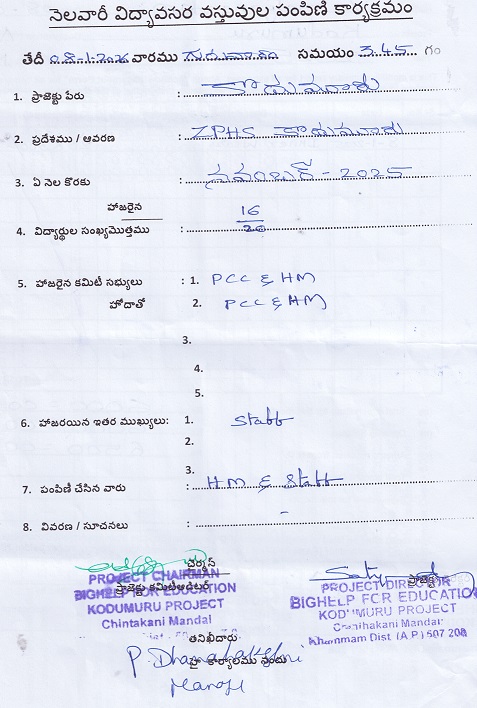 నెలవారీ విద్యావసర వస్తువుల పంపిణి కార్యక్రమం
తేదీ 08-1-2026 వారము గురువారం సమయం 3.45 గం
1. ప్రాజెక్టు పేరు : కొదుమూరు
2. ప్రదేశము / ఆవరణ : ZPHS కొదుమూరు
3. ఏ నెల కొరకు : నవంబర్ - 2025
హాజరైన 16
4. విద్యార్థుల సంఖ్యమొత్తము : 20
5. హాజరైన కమిటీ సభ్యులు : 1. PCC & HM
హోదాతో 2. PCC & HM
3.
4.
5.
6. హాజరయిన ఇతర ముఖ్యులు: 1. Staff
2.
3.
7. పంపిణి చేసిన వారు : HM & Staff
8. వివరణ / సూచనలు : -
ఛైర్మన్
ప్రాజెక్టు కమిటీఆడిటర్ ప్రాజెక్టు
PROJECT CHAIRMAN
BIGHELP FOR EDUCATION
KODUMURU PROJECT
Chintakani Mandal
PROJECT DIRECTOR
BIGHELP FOR EDUCATION
KODUMURU PROJECT
Chinthakani Mandal
Khammam Dist (A P) 507 208
తనిఖీదారు
P. Dhanalakshmi
హై కార్యాలము నందు
Manoji